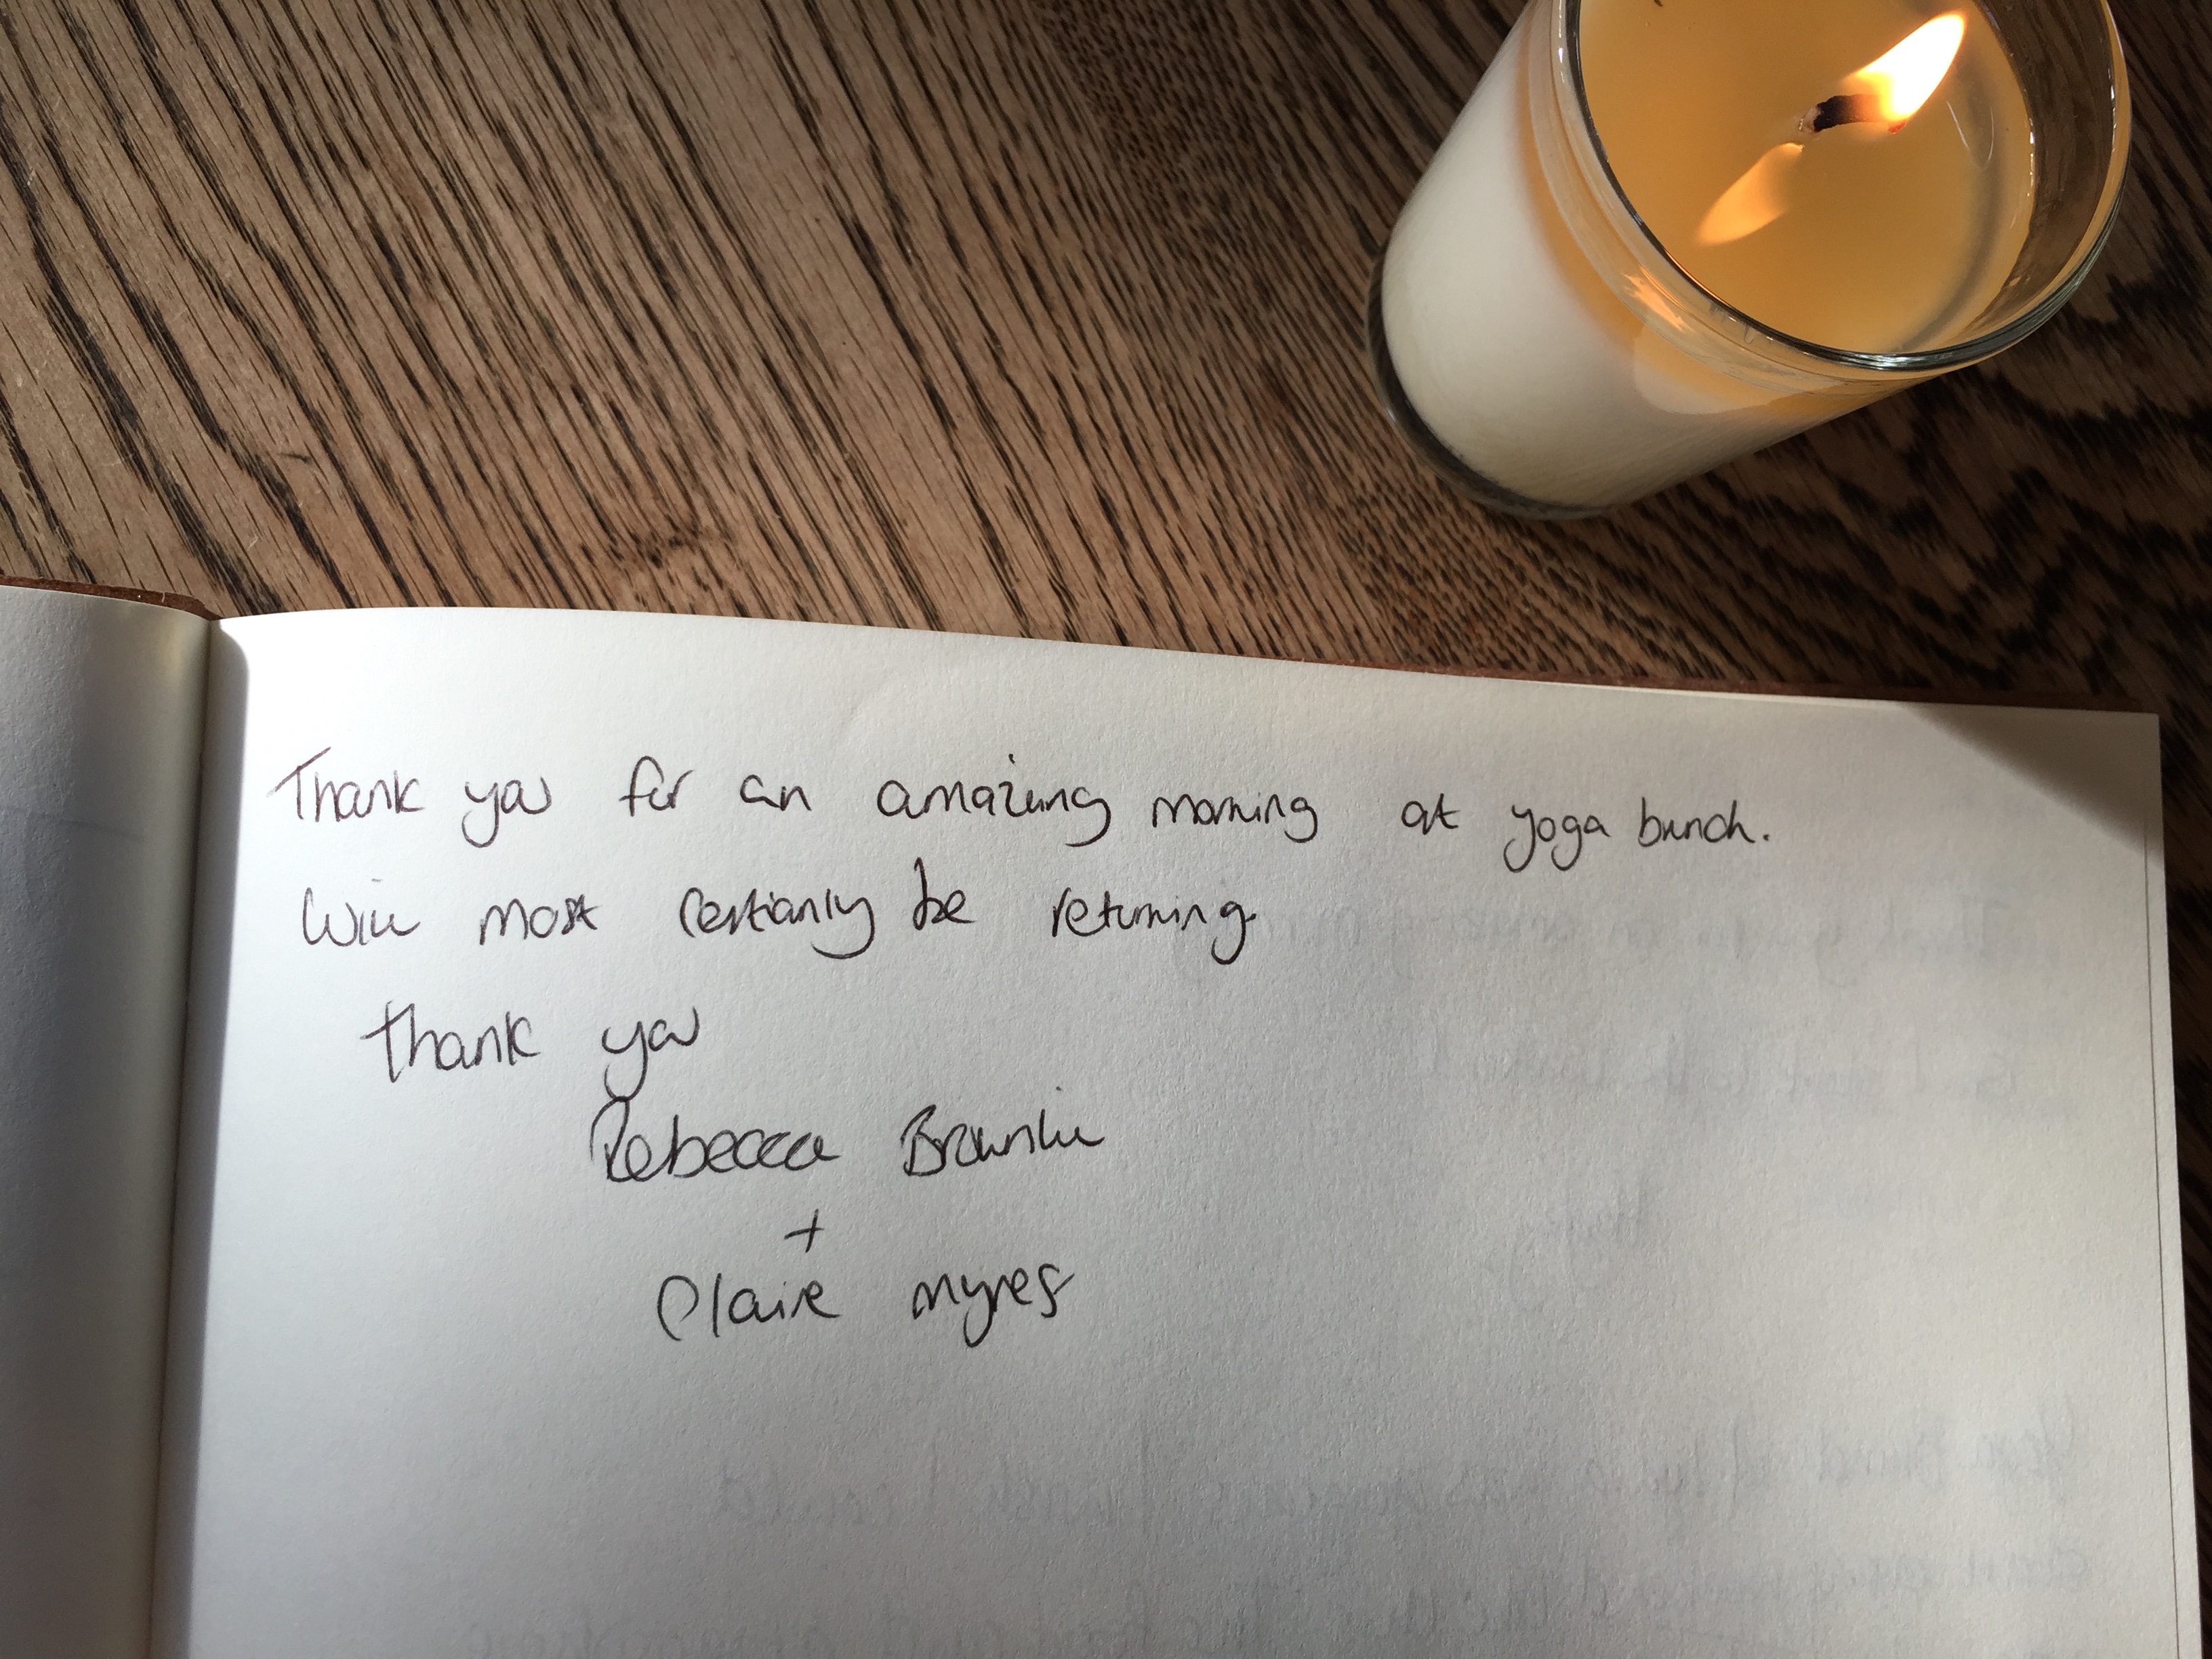 Thank you for an amazing morning at yoga bunch.
Will most certianly be returning.
thank you
Rebecca Brownlie
+
Claire myres